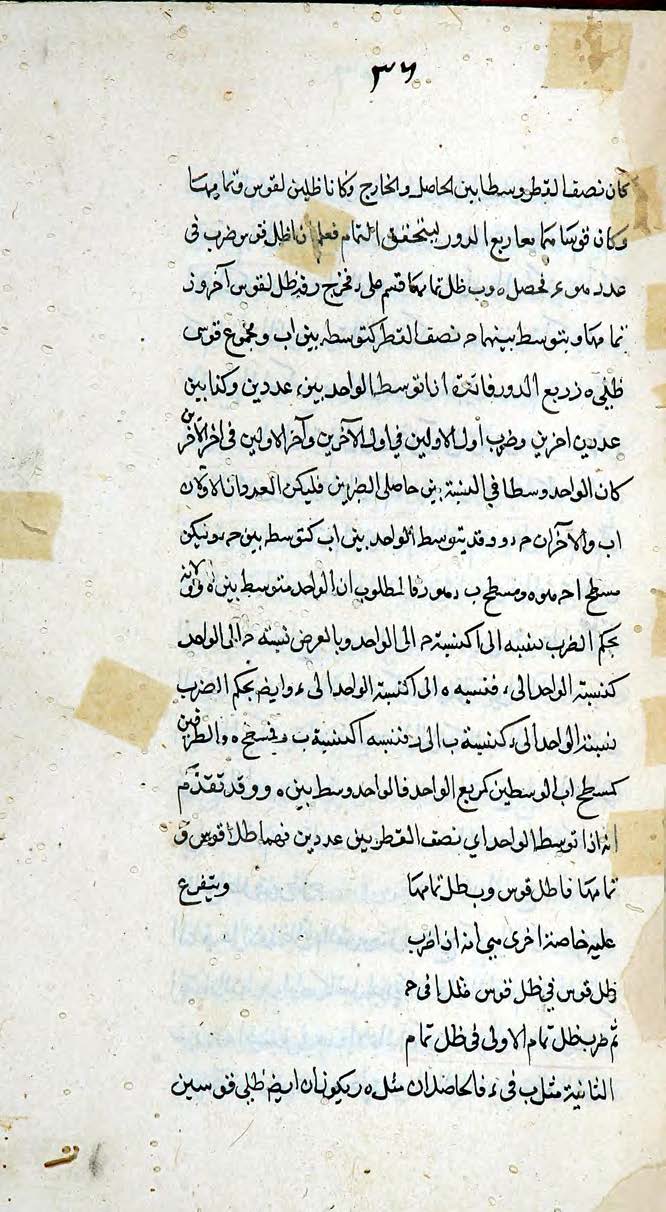 ٣٦
كان نصف القطر وسطا بين الحاصل والخارج وكانا ظلين لقوس وتمامها
وكان قوساهما معا ربع الدور ليتحقق التمام فعلم ان اظل قوس ضرب في
عدد هو ء فحصل ه وب ظل تمامها قسم على د فخرج ر فه ظل لقوس آخر و ر
تمامها ويتوسط بينهما ح نصف القطر كتوسطه بين اب ومجموع قوس
ظلي ه ر ربع الدور فائدة اذا توسط الواحد بين عددين وكذا بين
عددين اخرين وضرب اول الاولين في اول الآخرين وآخر الاولين في اخر الآخرين
كان الواحد وسطا في النسبة بين حاصلي الضربين فليكن العددان الاولان
اب والآخران ح د وقد يتوسط الواحد بين اب كتوسطه بين ح د وليكن
مسطح ا ح هو ه ومسطح ب د هو ر فالمطلوب ان الواحد متوسط بين ه و لانه
بحكم الضرب نسبه الى ا كنسبة ح الى الواحد وبالعرض نسبته ح الى الواحد
كنسبة الواحد الى ء فنسبه ه الى ا كنسبة الواحد الى ء وايضا بحكم الضرب
نسبة الواحد الى ء كنسبة ب الى ر فنسبه ا كنسبة ب فمسطح ه و الطرفين
كمسطح اب الوسطين كمربع الواحد فالواحد وسط بين ه و وقد تقدم
انه اذا توسط الواحد اي نصف القطر بين عددين فهما ظلا قوس و
تمامها فا ظل قوس وب ظل تمامها ويتفرع
عليه خاصة اخرى هي انه اذا ضرب
ظل قوس في ظل قوس مثل ا في ح
ثم ضرب ظل تمام الاولى في ظل تمام
الثانية مثل ب في ء فالحاصلان مثل ه ر يكونان ايضا ظلي قوسين